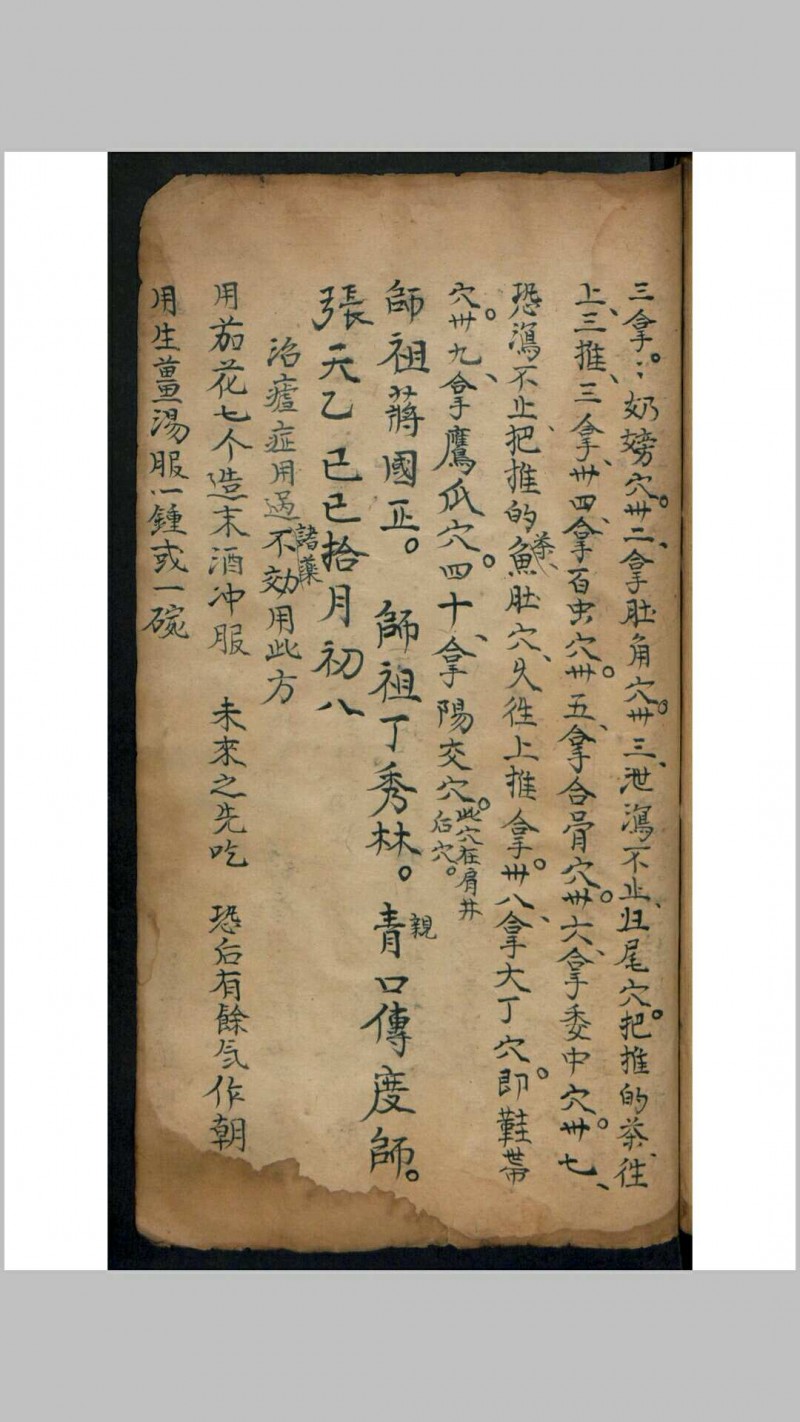 三拿：奶嫎穴。卅二、拿肚角穴。卅三、泄瀉不止、归尾穴。把推的茶、往
上、三推、三拿、卅四、拿百虫穴。卅五、拿合骨穴。卅六、拿委中穴。卅七、
恐瀉不止、把推的茶、魚肚穴、久徃上推拿。卅八、拿大丁穴。即鞋帯
穴。卅九、拿鷹爪穴。四十、拿陽交穴。此穴在肩井后穴。
師祖蔣國正。 師祖丁秀林。 親青口傳度師。
張天乙 已巳拾月初八
治瘧症用過諸藥不効用此方
用茄花七个造末酒冲服 未來之先吃 恐后有餘气作朝
用生薑湯服一鍾或一碗